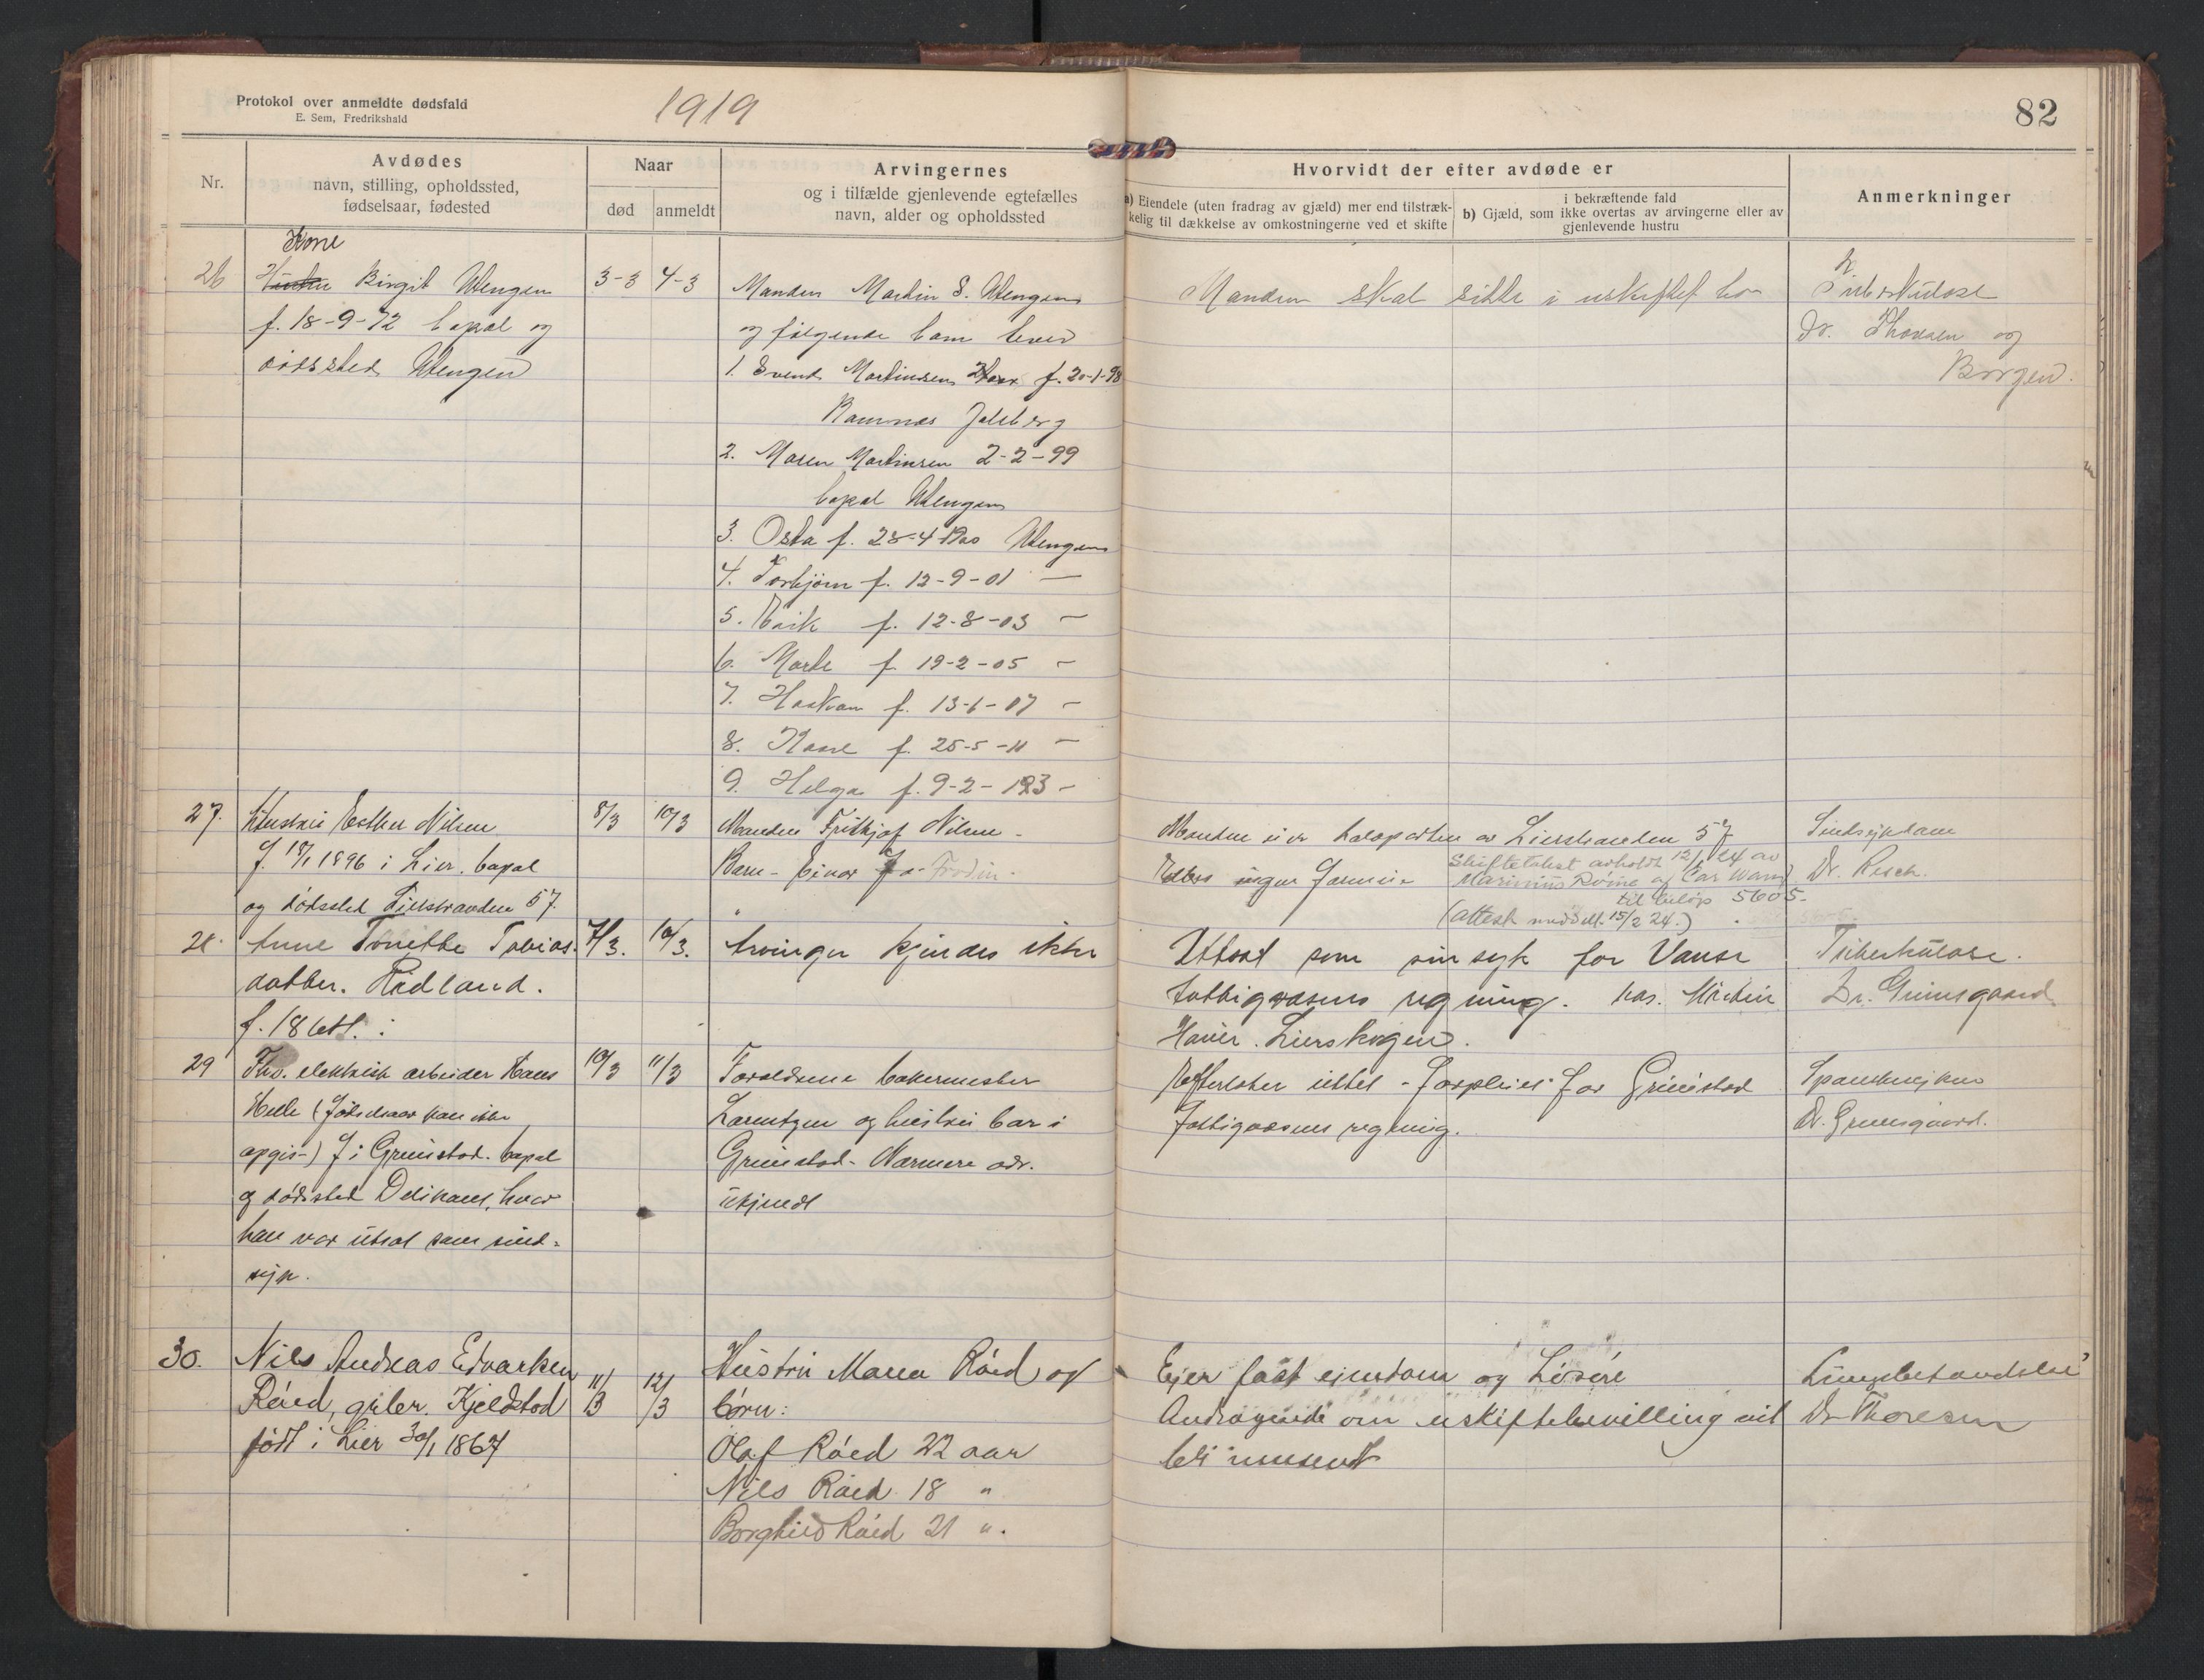 Protokol over anmeldte dødsfald
E. Sem, Fredrikshald
1919
82
Nr.
Avdødes
navn, stilling, opholdssted,
fødselsaar, fødested
Naar
død
anmeldt
Arvingernes
og i tilfælde gjenlevende egtefælles
navn, alder og opholdssted
Hvorvidt der efter avdøde er
a) Eiendele (uten fradrag av gjæld) mer end tilstræk-
kelig til dækkelse av omkostningerne ved et skifte
i bekræftende fald
b) Gjæld, som ikke overtas av arvingerne eller av
gjenlevende hustru
Anmerkninger
Kone
26 Birgit Utengen 3-3 4-3 Manden Martin S. Utengen Manden skal sitte i uskiftet bo Tuberkulose
f. 18-9-72 bopæl og og følgende barn lever Dr. Thoresen og
dødssted Utengen 1. Svend Martinsen f. 20-1-98 Borgen.
Ramnes Jalsberg
2. Maren Martinsen 2-2-99
bopæl Utengen
3. Osta f. 28-4 1900 Utengen
4. Torbjørn f. 12-9-01 —
5. Eirik f. 12-8-03 —
6. Marte f. 19-2-05 —
7. Haakon f. 13-1-07 —
8. Kaare f. 25-5-11 —
9. Helga f. 9-2-1913 —
27. Hustru Esther Nilsen 8/3 10/3 Manden Fritkjof Nilsen - Manden eier halvparten av Lierstranden 57 Sindsykdom
f. 18/1 1896 i Lier. bopæl Barn - Einar Frodin. Ellers ingen formue Skiftetakst avholdt 12/1 24 av Dr. Resch.
og dødssted Lierstranden 57. til beløp 5605-
(attest meddelt 15/2 24.)
28. Anne Tonette Tobias- 7/3. 10/3. Arvinger kjendes ikke Utsat som sinsyk for Vanse Tuberkulose.
datter. Rødland. fattigvæsens regning. hos Dr. Grimsgaard
f. 18 Lierskogen.
29 Fhv. elektrisk arbeider Hans 10/3 11/3 Forældrene bakermester Efterlater intet - forpleiet for Grimstad Spanskesyken
Helle (Fødselsaar kan ikke Larentzen og hustru bor i fattigvæsens regning. Dr. Grimsgaard.
opgis-) f i Grimstad. bopæl Grimstad. Nærmere adr.
og dødssted hvor ukjendt
han var utsat som sind-
syk.
30. Nils Andreas Edvarsen 11/3 12/3 Hustru Maren Røed og Eier fast eiendom og Løsøre Lungebetændelse
Røed, grbr. Kjeldstad børn: Andragende om uskiftebevilling vil Dr Thoresen
født i Lier 30/1 1867 Olaf Røed 22 aar bli innsendt
Nils Røed 18 "
Borghild Røed 21 ".